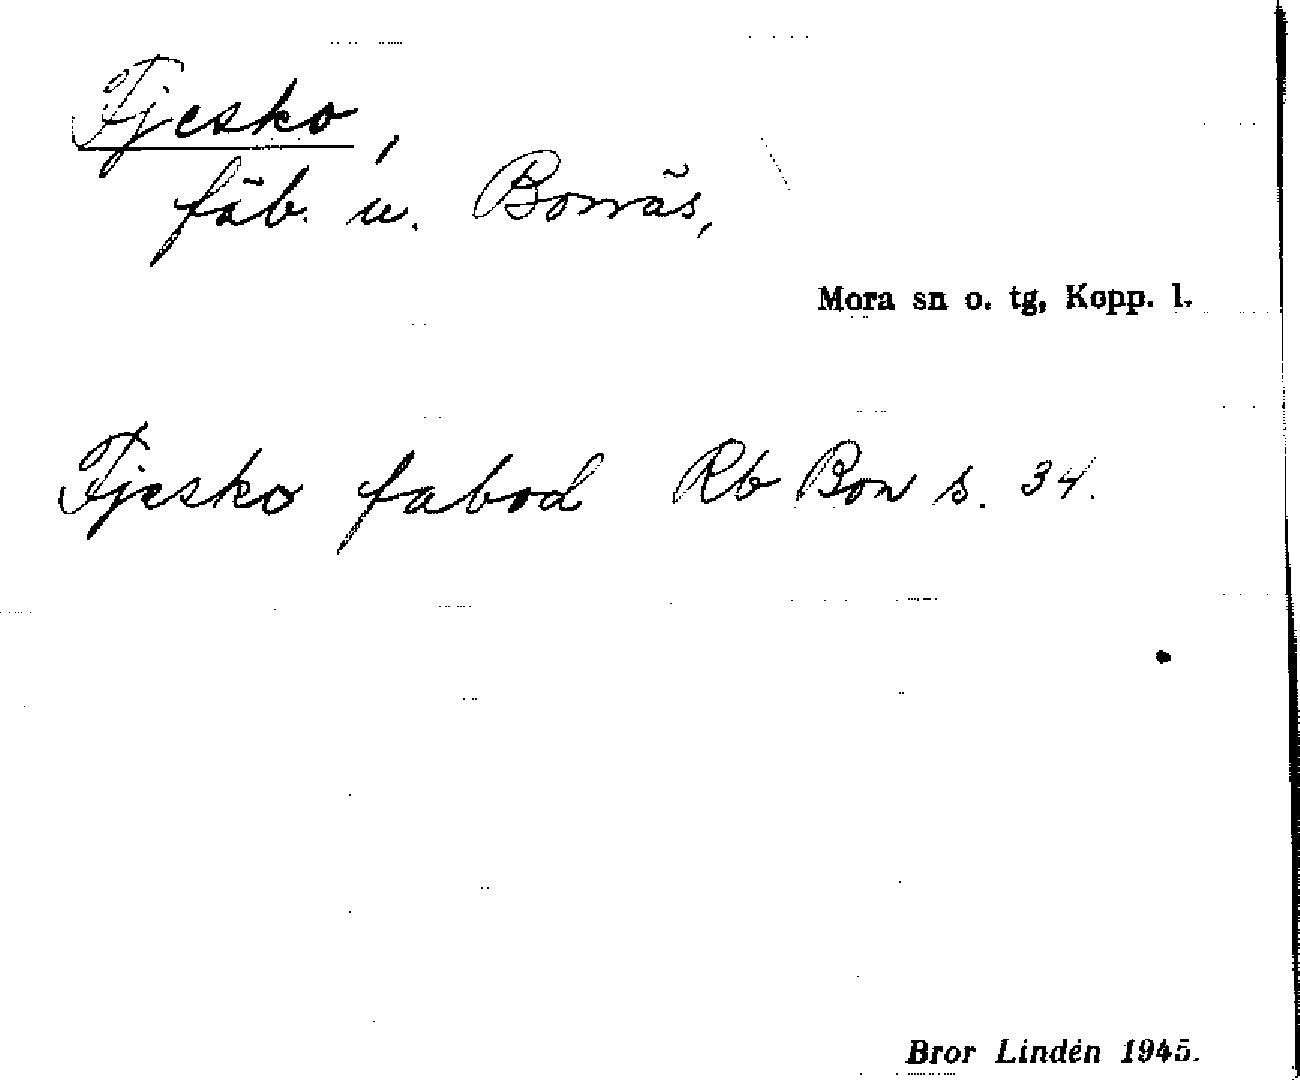 Fjesko,
fäb. u. Bonäs,
Mora sn o. tg, Kopp. l.
Fjesko fabod Rb Bon s. 34.
Bror Lindén 1945.